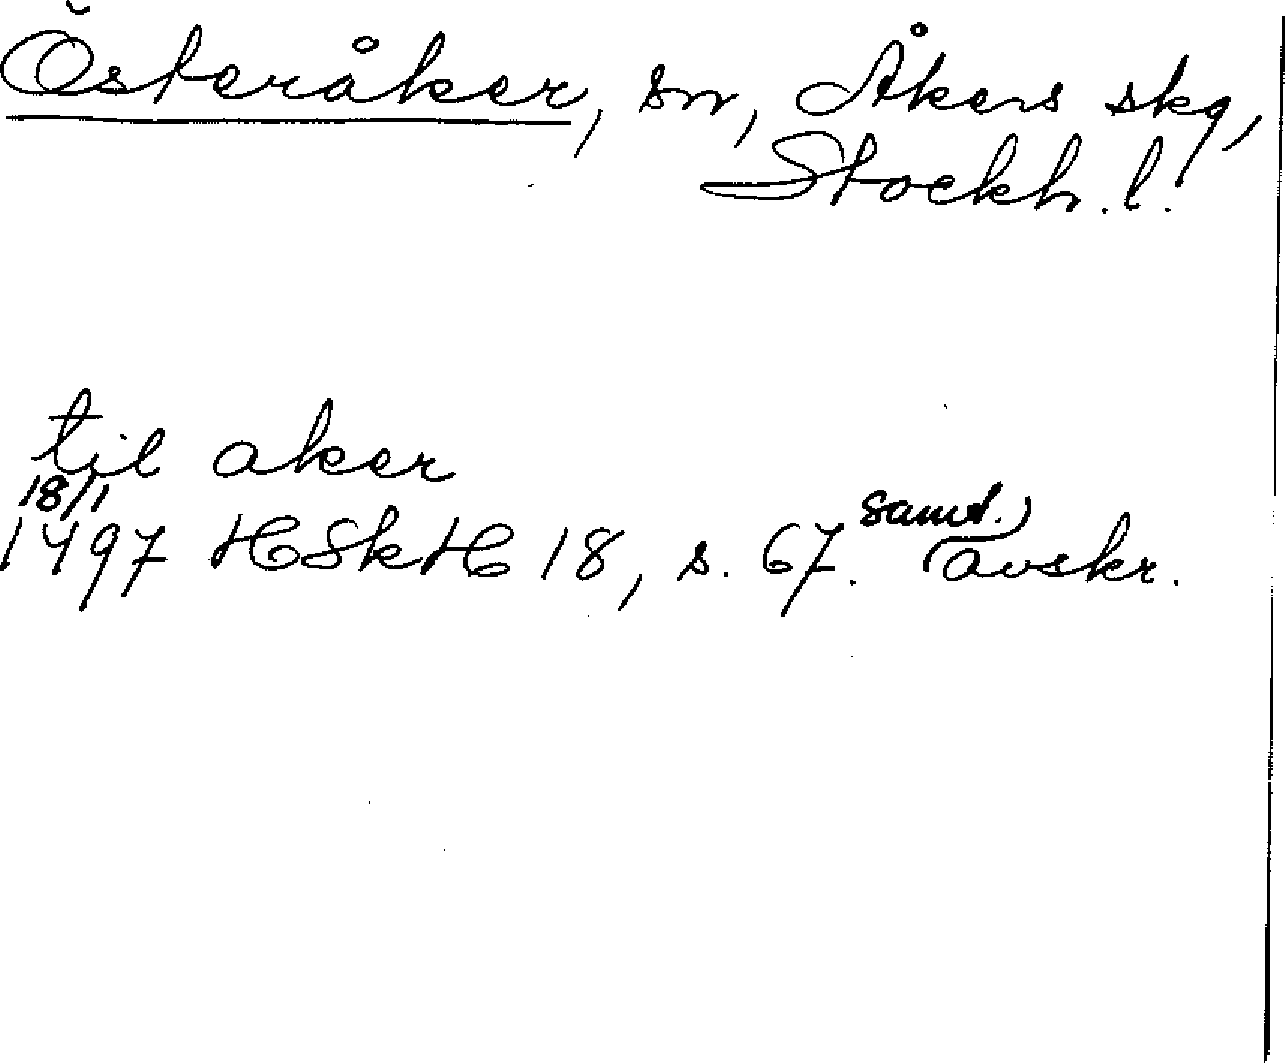 Österåker, sn, Åkers skg,
Stockh. l.
til aker
18/1
1497 HSkH 18, s. 67. samt.) avskr.